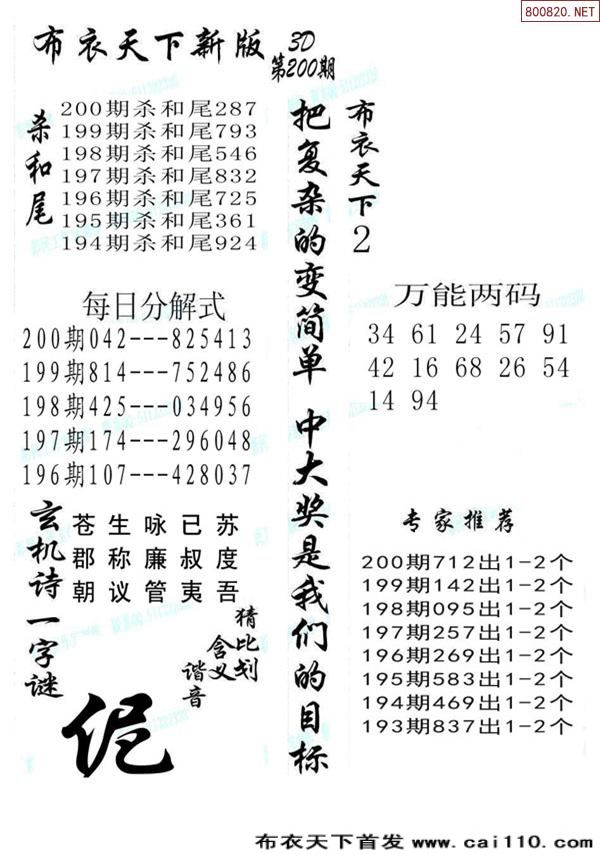 800820.NET
布衣天下新版
3D
第200期
杀和尾
200期杀和尾287
199期杀和尾793
198期杀和尾546
197期杀和尾832
196期杀和尾725
195期杀和尾361
194期杀和尾924
每日分解式
200期042---825413
199期814---752486
198期425---034956
197期174---296048
196期107---428037
玄机诗
苍生咏已苏
郡称廉叔度
朝议管夷吾
一字谜
猜比划
含义
谐音
伲
把复杂的变简单 中大奖是我们的目标
布衣天下2
万能两码
34 61 24 57 91
42 16 68 26 54
14 94
专家推荐
200期712出1-2个
199期142出1-2个
198期095出1-2个
197期257出1-2个
196期269出1-2个
195期583出1-2个
194期469出1-2个
193期837出1-2个
布衣天下首发 www.cai110.com